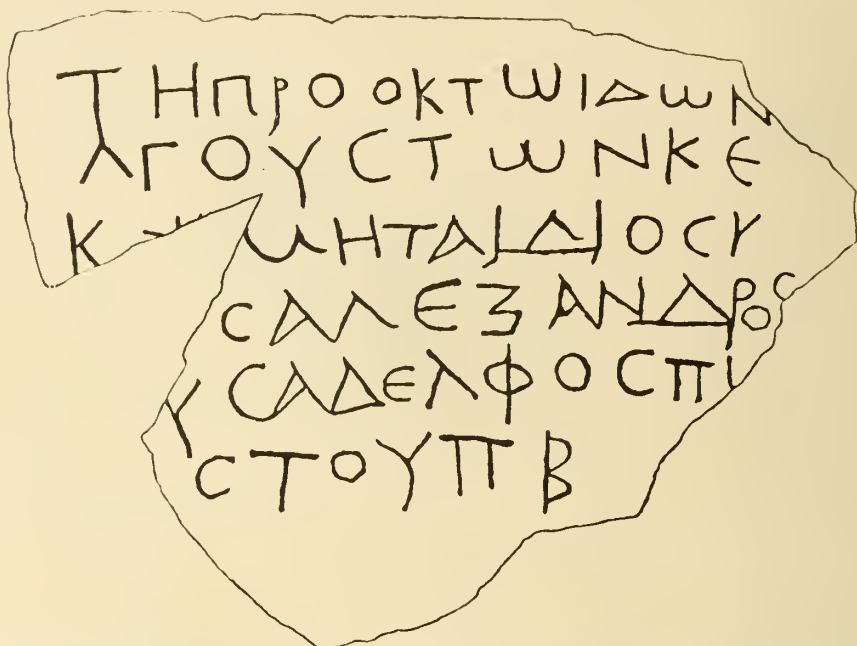 ΤΗΠΡΟΟΚΤΩΙΔΩΝ
ΑΓΟΥСΤΩΝΚΕ
ΩΗΤΑΙΔΙΟСΥ
СΑΛΕΞΑΝΔΡΟС
ΥСΑΔΕΛΦΟСΠΙ
СΤΟΥΠΒ